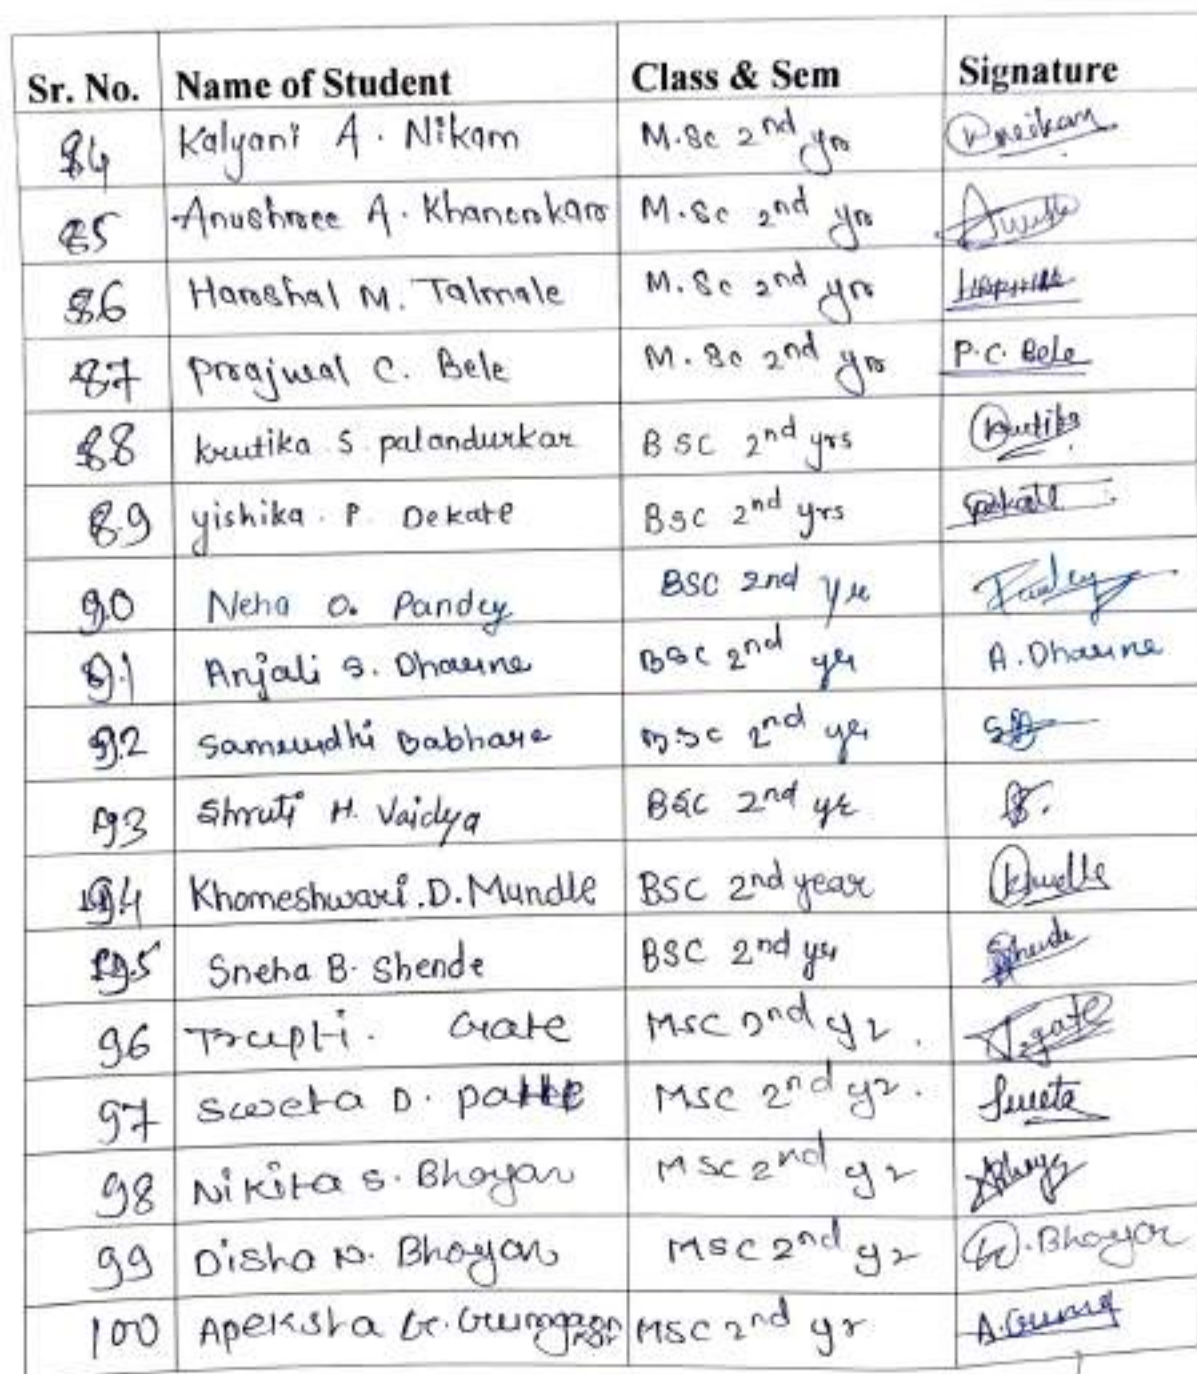 Sr. No. Name of Student Class & Sem Signature
84 Kalyani A. Nikam M.Sc 2nd yr
85 Anushree A. Khanorkar M.Sc 2nd yr
86 Harshal M. Talmale M.Sc 2nd yr
87 Prajwal C. Bele M.Sc 2nd yr P.C. Bele
88 krutika S. palandurkar BSC 2nd yrs Krutika
89 yishika. P. Dekate BSC 2nd yrs Dekate
90 Neha O. Pandey BSC 2nd yr Pandey
91 Anjali S. Dhaurne BSC 2nd yr A. Dhaurne
92 Samrudhi Babhare B.Sc 2nd yr
93 Shruti H. Vaidya BSC 2nd yr
94 Khomeshwari.D.Mundle BSC 2nd year
95 Sneha B. Shende BSC 2nd yr Shende
96 Trupti. Gate MSC 2nd yr. T.gate
97 Sweta D. MSC 2nd yr. Sweta
98 Nikita S. Bhoyar MSC 2nd yr
99 Disha N. Bhoyar MSC 2nd yr D.Bhoyar
100 Apeksha G. Gumgaonkar MSC 2nd yr